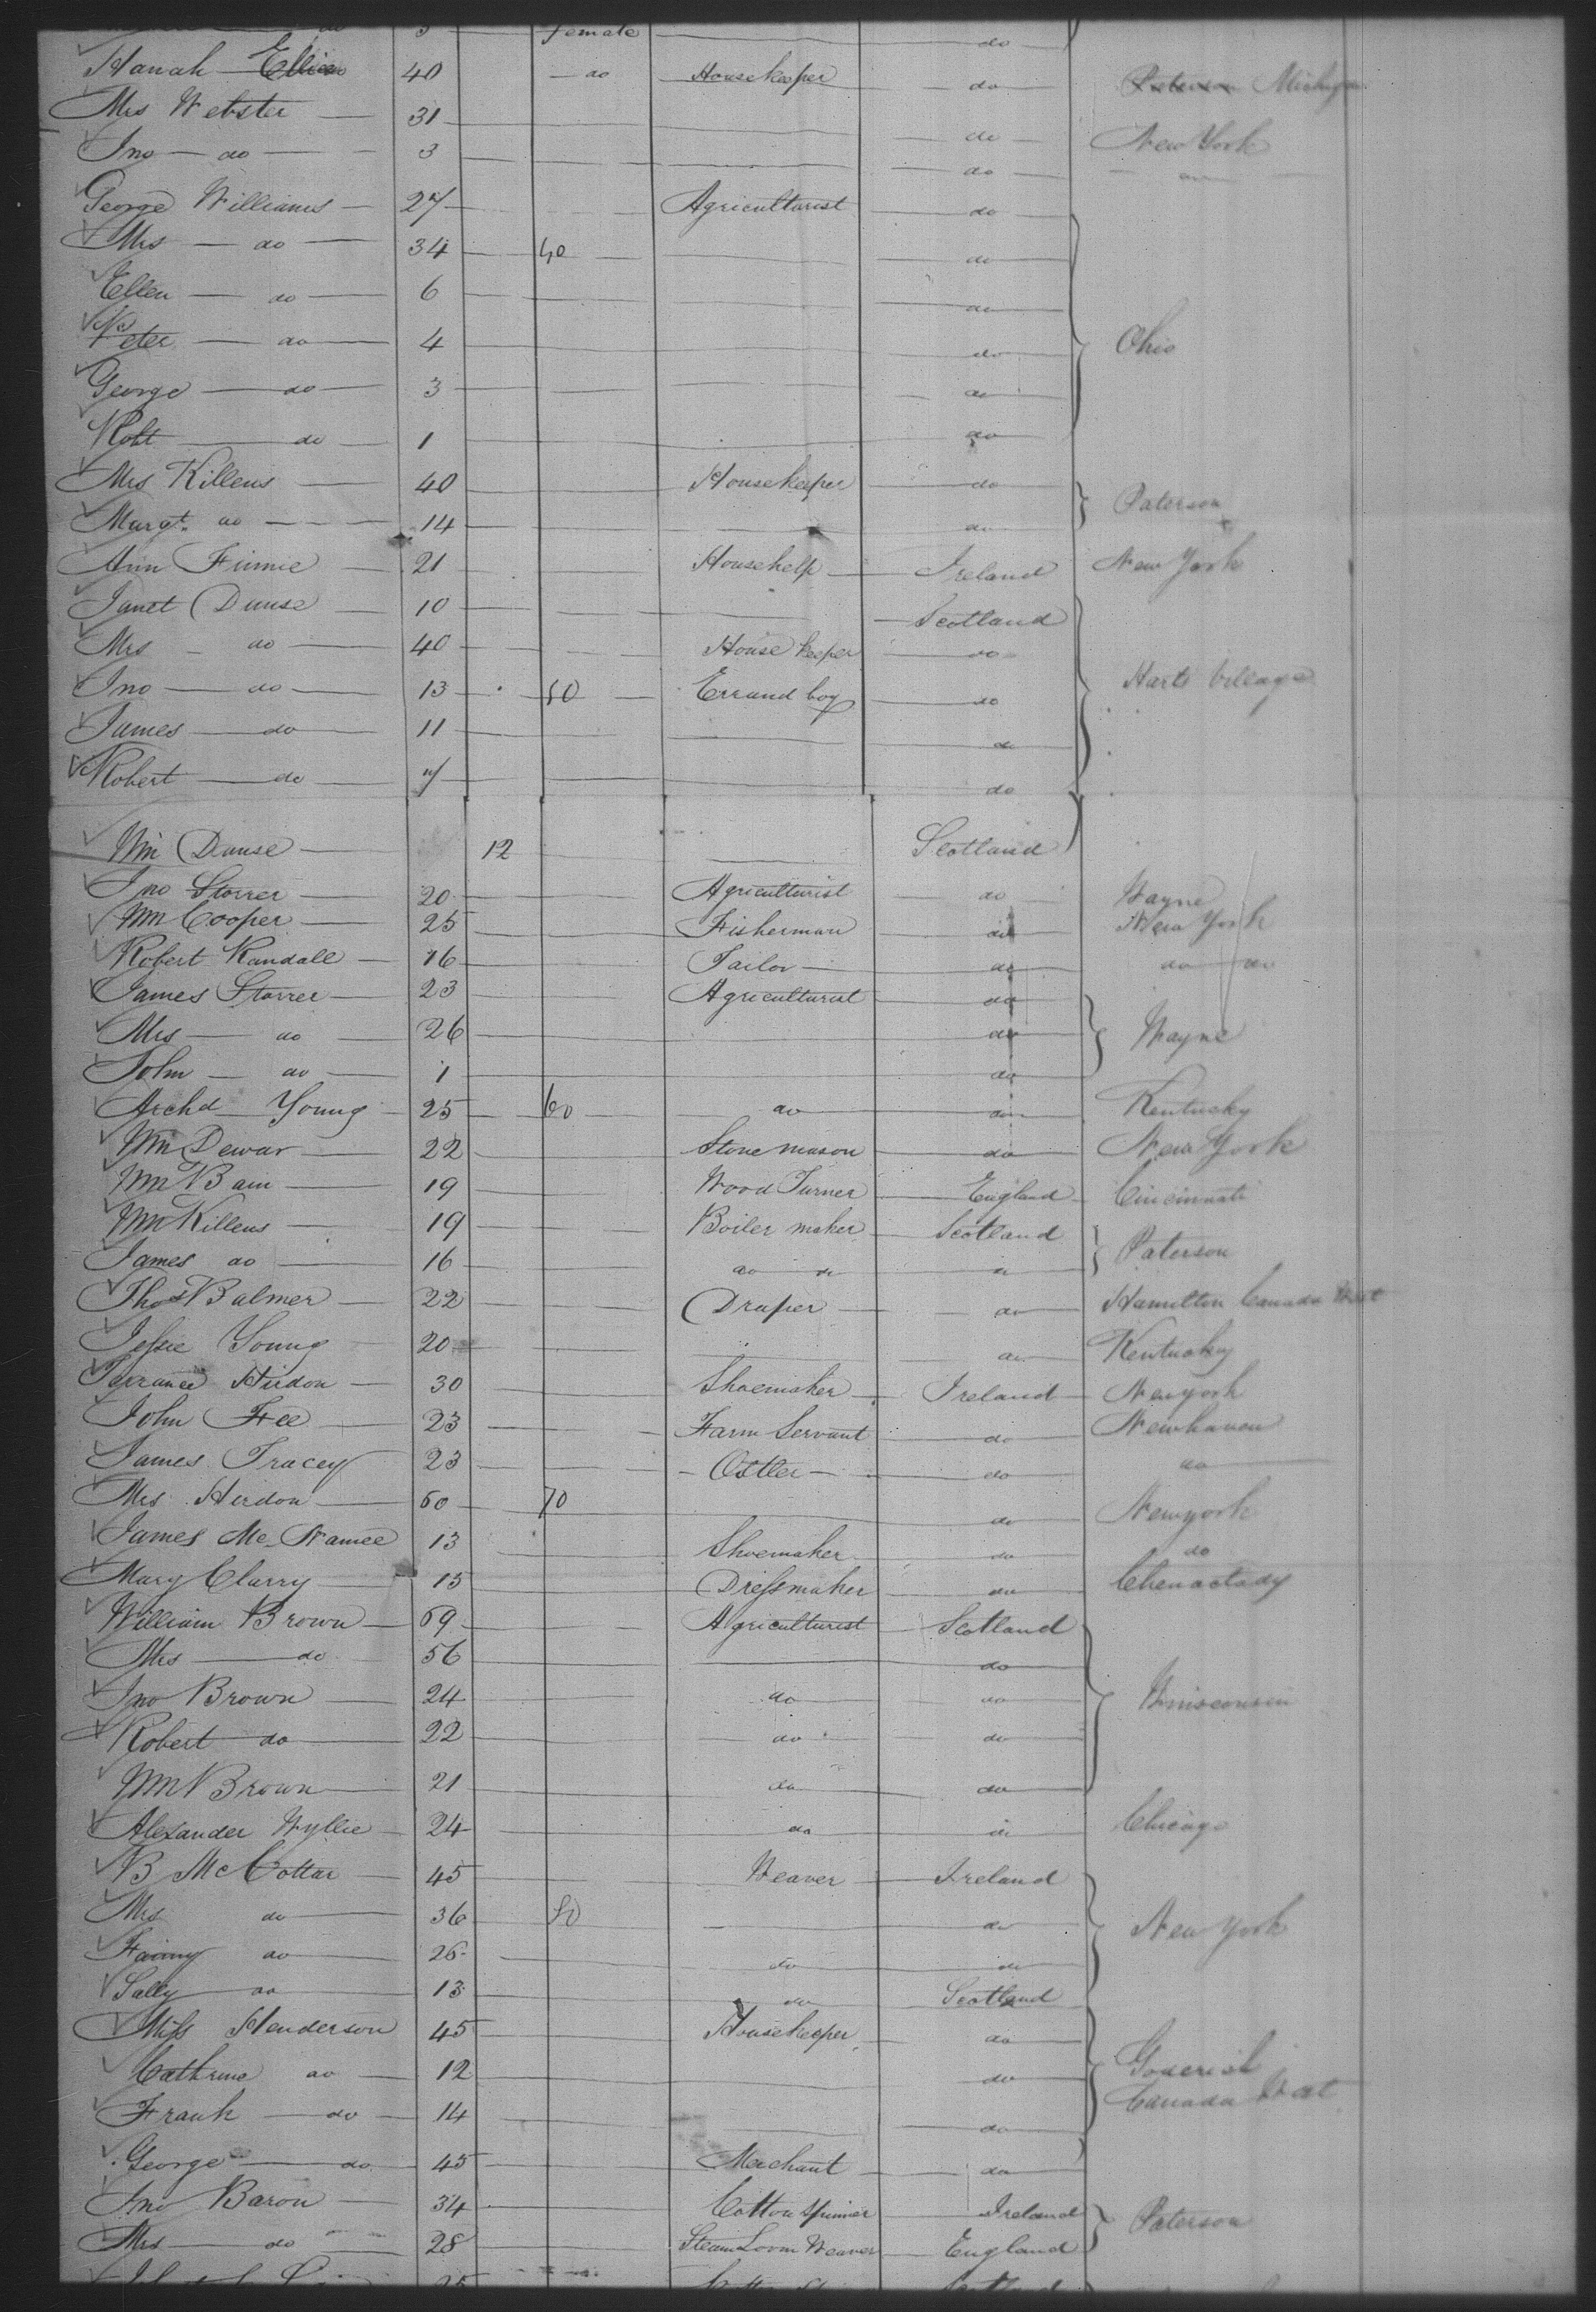 do 5 female do
Hanah Ellis 40 do Housekeeper do Paterson Michigan
Mrs Webster 31 do New York
Jno do 3 do do
George Williams 27 Agriculturist do
Mrs do 34 40 do
Ellen do 6 do
Peter do 4 do Ohio
George do 3 do
Robt do 1 do
Mrs Killens 40 Housekeeper do Paterson
Margt. do 14 do
Ann Finnie 21 Househelp Ireland New York
Janet Dunse 10 Scotland
Mrs do 40 House keeper do
Jno do 13 50 Errand boy do Harts Village
James do 11 do
Robert do 7 do
Wm Dunse 12 Scotland
Jno Storrer 20 Agriculturist do Wayne
Wm Cooper 25 Fisherman do New York
Robert Randall 16 Tailor do do do
James Storrer 23 Agriculturist do
Mrs do 26 do Wayne
John do 1 do
Archd Young 25 60 do do Kentucky
Wm Dewar 22 Stone mason do New York
Wm Bain 19 Wood Turner England Cincinnati
Wm Killens 19 Boiler maker Scotland Paterson
James do 16 do do do
Thos Balmer 22 Draper do Hamilton Canada West
Jessie Young 20 do Kentucky
Terrance Hirdon 30 Shoemaker Ireland Newyork
John Fee 23 Farm Servant do Newhaven
James Tracey 23 Ostler do do
Mrs Hirdon 60 70 do Newyork
James Mc Namee 13 Shoemaker do do
Mary Clarry 15 Dressmaker do Chenactady
William Brown 59 Agriculturist Scotland
Mrs do 56 do
Jno Brown 24 do do Winisconsin
Robert do 22 do do
Wm Brown 21 do do
Alexander Wyllie 24 do do Chicago
B McCottar 45 Weaver Ireland
Mrs do 36 80 do New York
Fanny do 26 do do
Sally do 13 do Scotland
Miss Henderson 45 Housekeeper do
Cathrine do 12 do Goderich
Frank do 14 do Canada West
George do 45 Merchant do
Jno Baron 34 Cotton spinner Ireland Paterson
Mrs do 28 Steam Loom Weaver England
25 Scotland